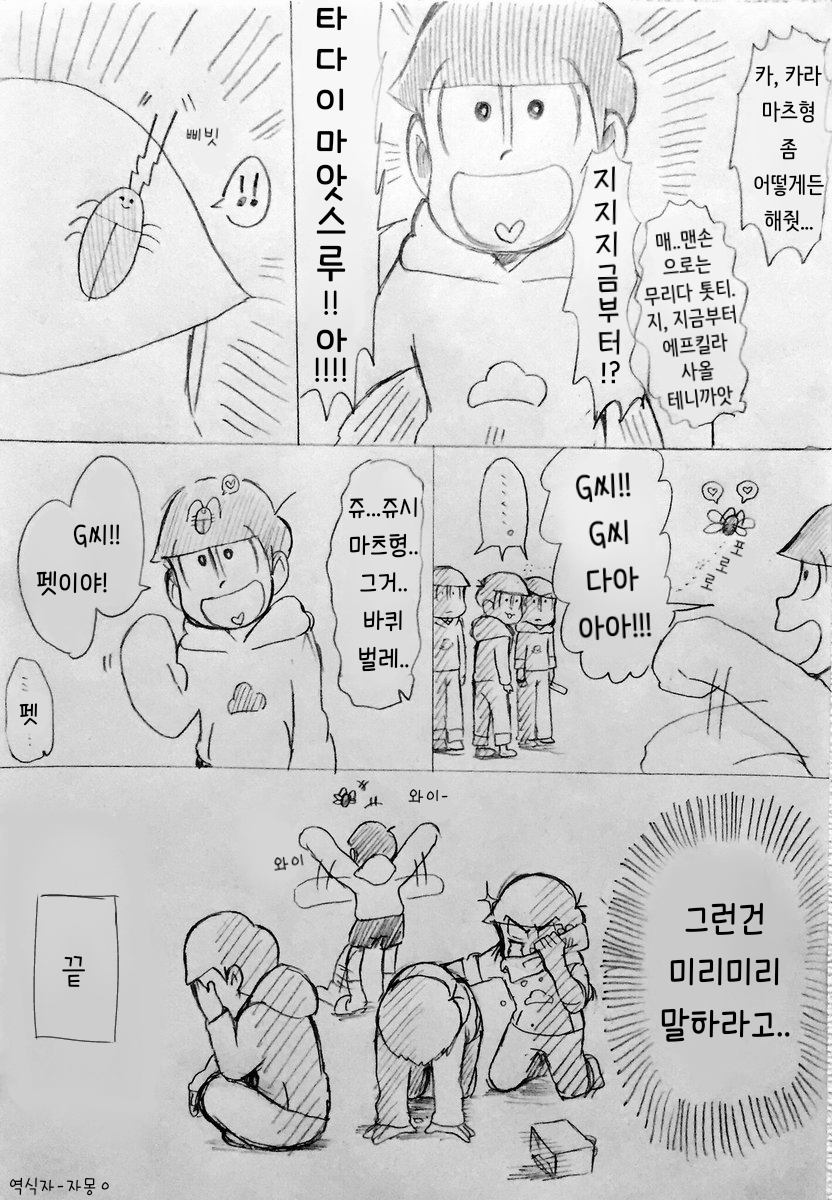 카, 카라
마츠형
좀
어떻게든
해줫...
매..맨손
으로는
무리다 톳티.
지, 지금부터
에프킬라
사올
테니까앗
지지지금부터!?
타다이마앗스루!! 아!!!!
삐빗
!!
G씨!!
G씨
다아
아아!!!
포로로
쥬...쥬시
마츠형..
그거..
바퀴
벌레..
G씨!!
펫이야!
펫
와이-
와이
그런건
미리미리
말하라고..
끝
역식자-자몽